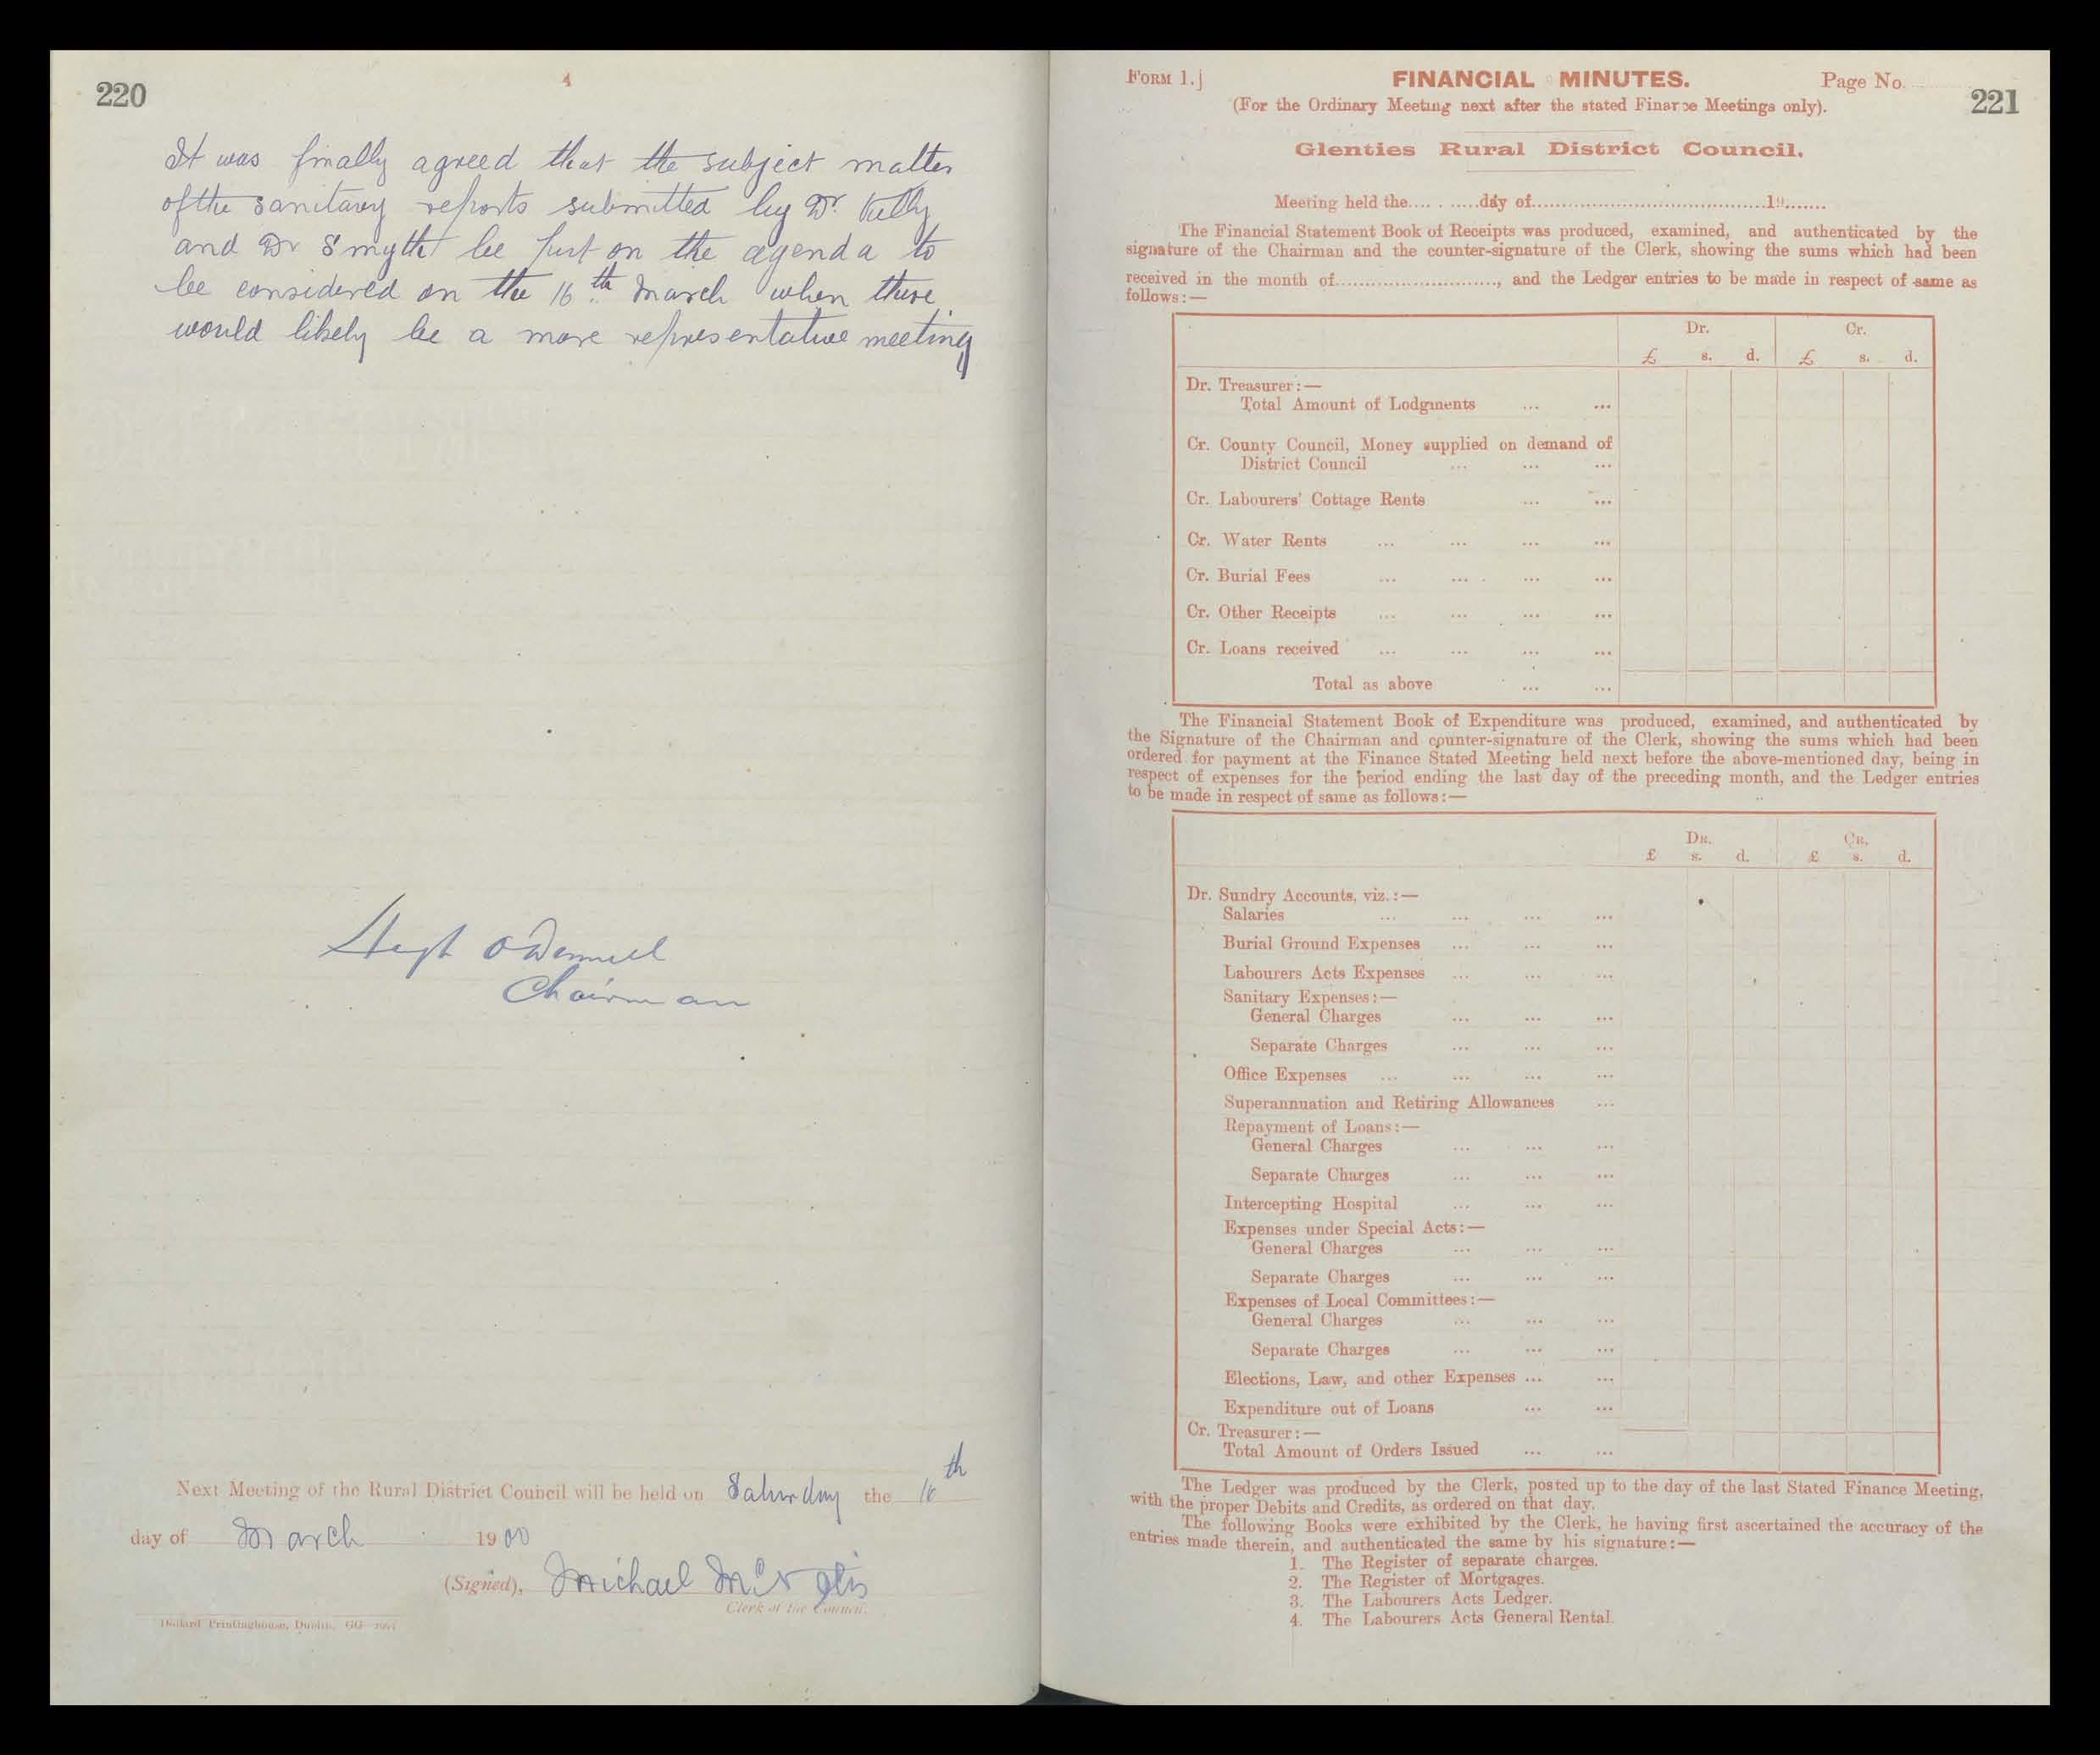 220
4
It was finally agreed that the subject matter
of the sanitary reports submitted by Dr. Kelly
and Dr Smyth be put on the agenda to
be considered on the 16th March when there
would likely be a more representative meeting
Hugh O'Donnell
Chairman
Next Meeting of the Rural District Council will be held on Saturday the 16th
day of March 1900
(Signed), Michael
Clerk of the Council.
Dollard Printinghouse, Dublin. GG
FORM 1.]
FINANCIAL MINUTES.
Page No.
221
(For the Ordinary Meeting next after the stated Finance Meetings only).
Glenties Rural District Council.
Meeting held the.... . .....day of..........................................19.......
The Financial Statement Book of Receipts was produced, examined, and authenticated by the
signature of the Chairman and the counter-signature of the Clerk, showing the sums which had been
received in the month of............................, and the Ledger entries to be made in respect of same as
follows:—
Dr. Cr.
£ s. d. £ s. d.
Dr. Treasurer:—
Total Amount of Lodgments ... ...
Cr. County Council, Money supplied on demand of
District Council ... ... ...
Cr. Labourers' Cottage Rents ... ...
Cr. Water Rents ... ... ... ...
Cr. Burial Fees ... ... ... ...
Cr. Other Receipts ... ... ... ...
Cr. Loans received ... ... ... ...
Total as above ... ...
The Financial Statement Book of Expenditure was produced, examined, and authenticated by
the Signature of the Chairman and counter-signature of the Clerk, showing the sums which had been
ordered for payment at the Finance Stated Meeting held next before the above-mentioned day, being in
respect of expenses for the period ending the last day of the preceding month, and the Ledger entries
to be made in respect of same as follows:—
DR. CR.
£ s. d. £ s. d.
Dr. Sundry Accounts, viz.:—
Salaries ... ... ... ...
Burial Ground Expenses ... ... ...
Labourers Acts Expenses ... ... ...
Sanitary Expenses:—
General Charges ... ... ...
Separate Charges ... ... ...
Office Expenses ... ... ... ...
Superannuation and Retiring Allowances ...
Repayment of Loans:—
General Charges ... ... ...
Separate Charges ... ... ...
Intercepting Hospital ... ... ...
Expenses under Special Acts:—
General Charges ... ... ...
Separate Charges ... ... ...
Expenses of Local Committees:—
General Charges ... ... ...
Separate Charges ... ... ...
Elections, Law, and other Expenses ... ...
Expenditure out of Loans ... ...
Cr. Treasurer:—
Total Amount of Orders Issued ... ...
The Ledger was produced by the Clerk, posted up to the day of the last Stated Finance Meeting,
with the proper Debits and Credits, as ordered on that day.
The following Books were exhibited by the Clerk, he having first ascertained the accuracy of the
entries made therein, and authenticated the same by his signature:—
1. The Register of separate charges.
2. The Register of Mortgages.
3. The Labourers Acts Ledger.
4. The Labourers Acts General Rental.